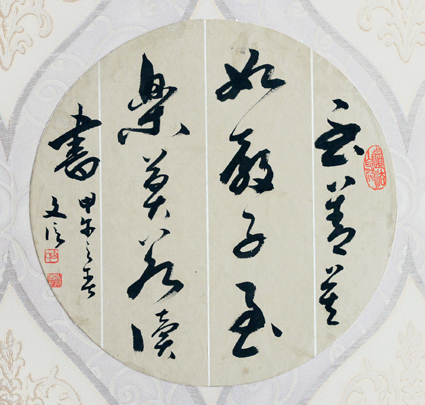 至善莫
如教子至
樂莫若讀
書
甲午之春
文